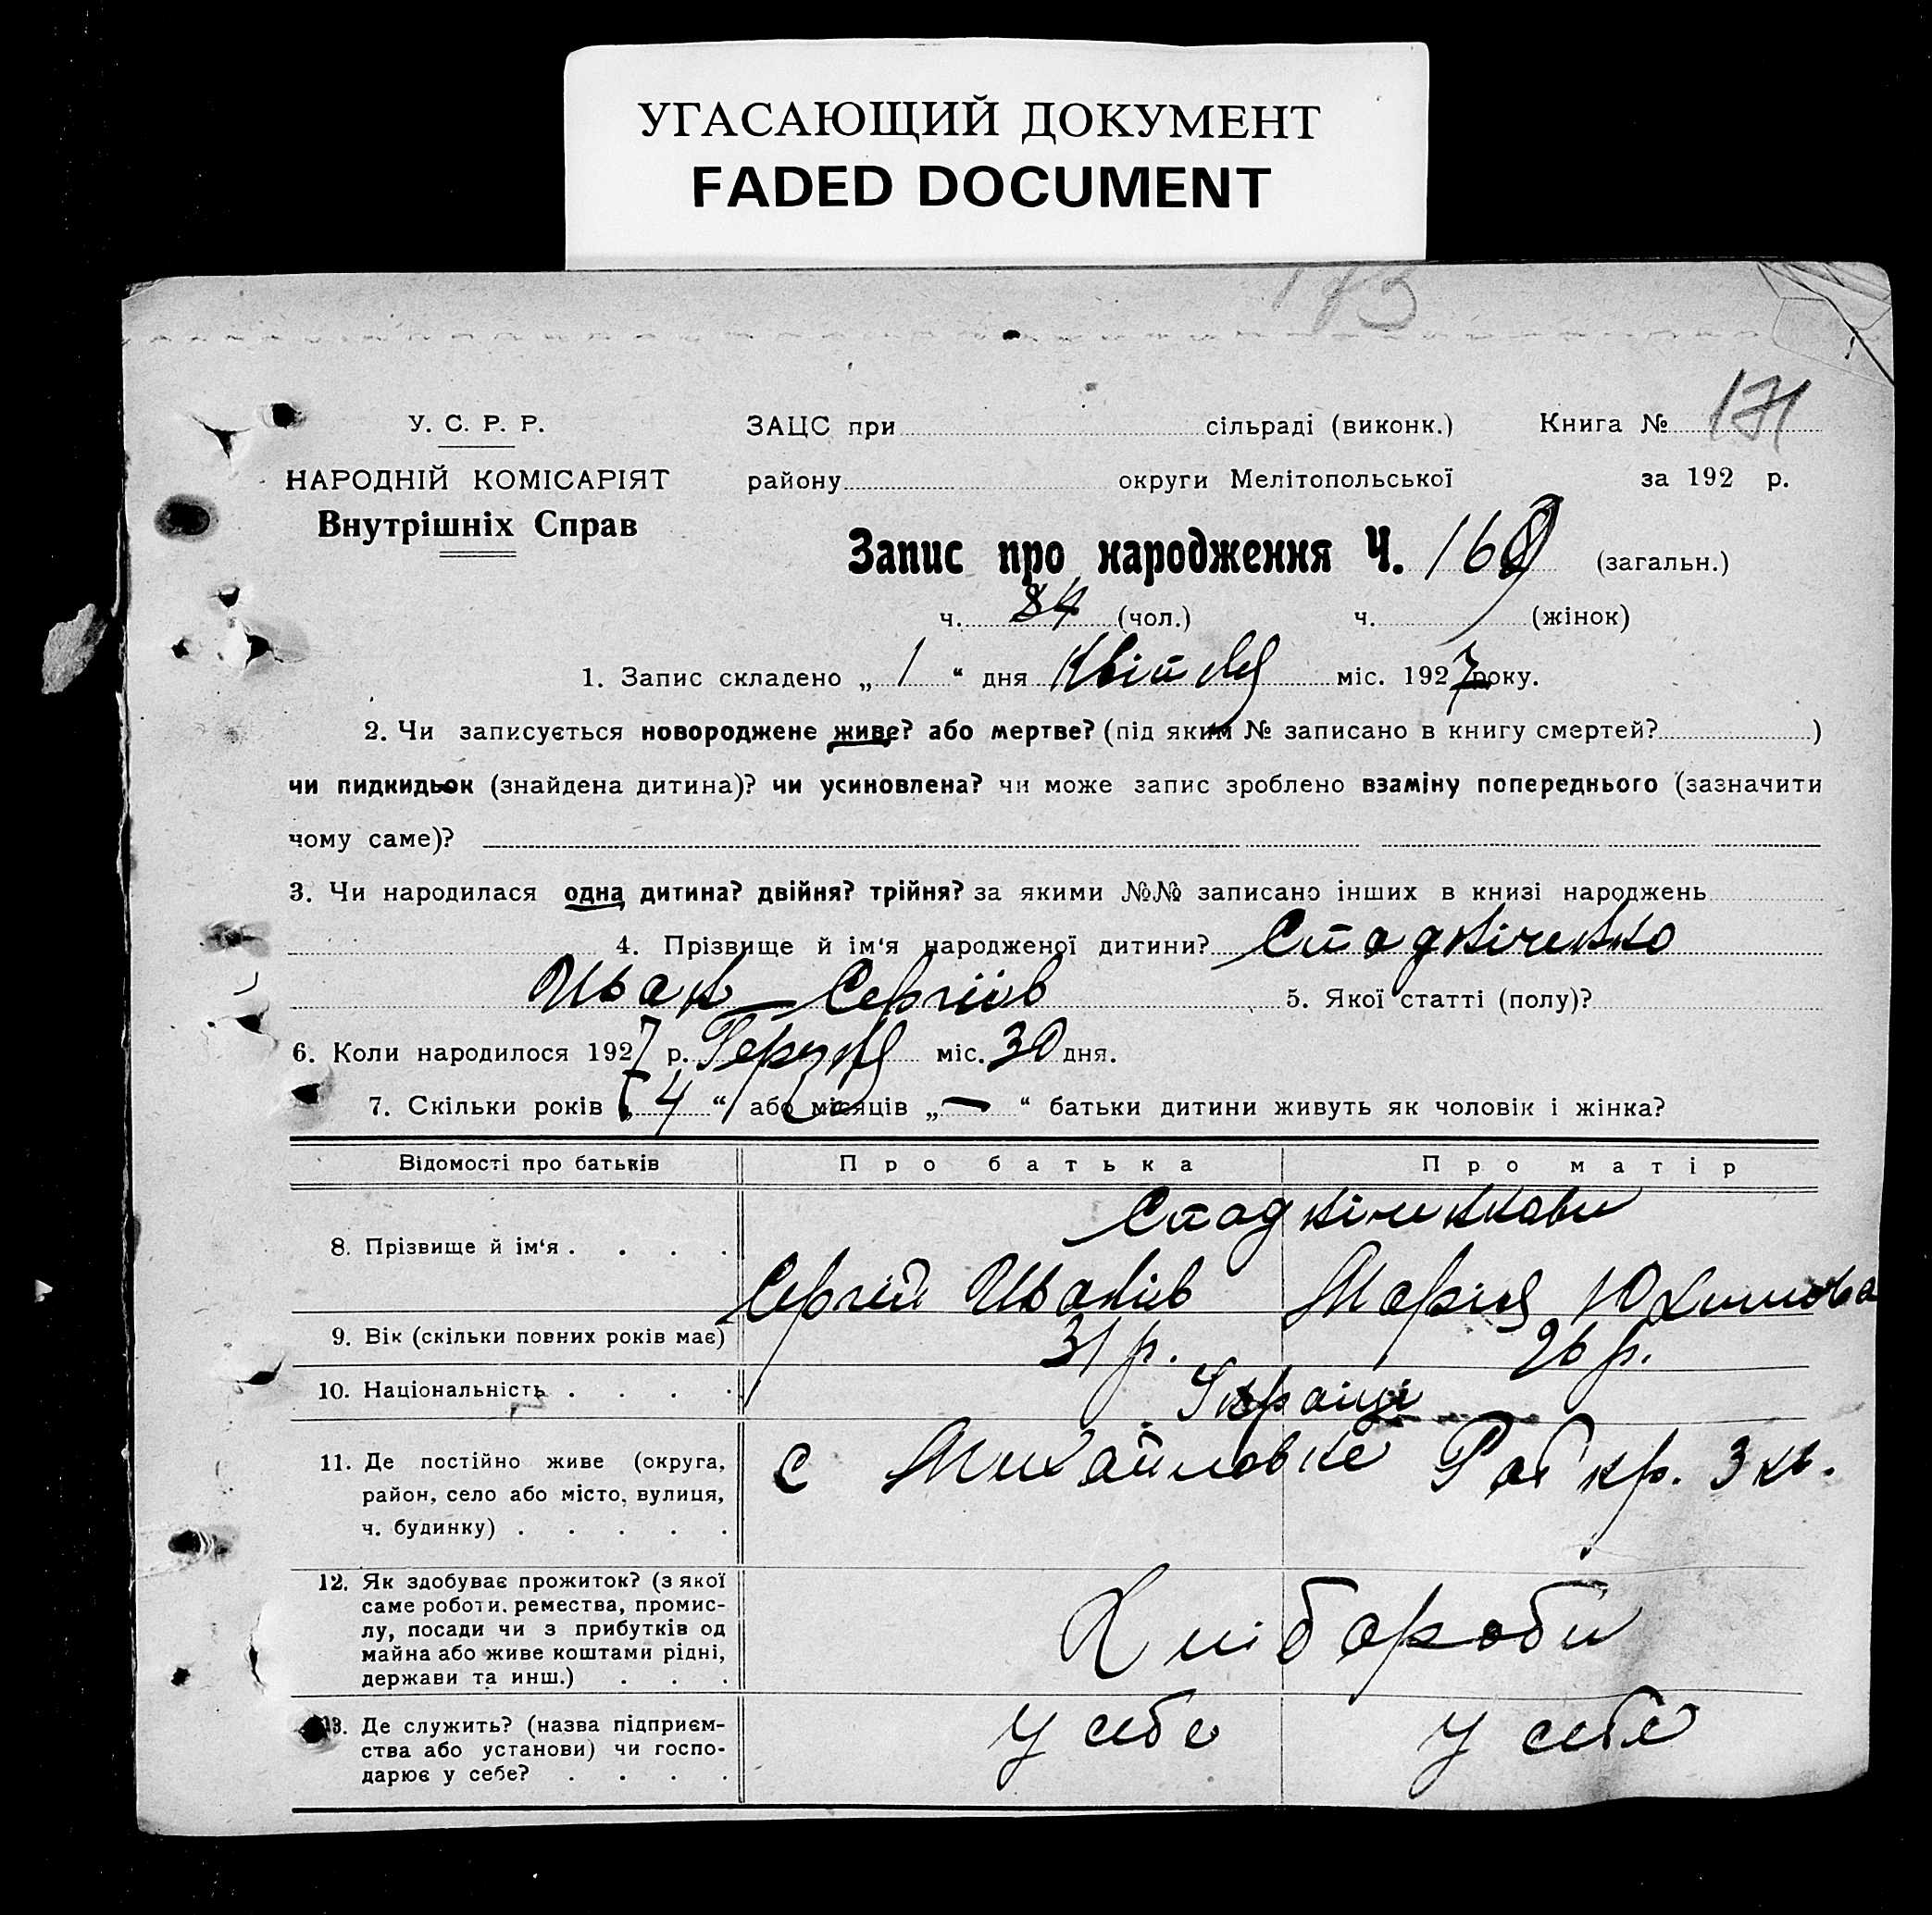 УГАСАЮЩИЙ ДОКУМЕНТ
FADED DOCUMENT
173
У. С. Р. Р.
ЗАЦС при сільраді (виконк.)
Книга № 171
НАРОДНІЙ КОМІСАРІЯТ
району округи Мелітопольської
за 192 р.
Внутрішніх Справ
Запис про народження Ч. 16 (загальн.)
ч. 84 (чол.) ч. (жінок)
1. Запис складено „ 1 “ дня Квітня міс. 1927 року.
2. Чи записується новороджене живе? або мертве? (під яким № записано в книгу смертей? )
чи пидкидьок (знайдена дитина)? чи усиновлена? чи може запис зроблено взаміну попереднього (зазначити
чому саме)?
3. Чи народилася одна дитина? двійня? трійня? за якими №№ записано інших в книзі народжень
4. Прізвище й ім‘я народженої дитини? Стадніченко
Иван Сергіїв 5. Якої статті (полу)?
6. Коли народилося 1927 р. міс. 30 дня.
7. Скільки років „ 4 “ або місяців „ — “ батьки дитини живуть як чоловік і жінка?
Відомості про батьків Про батька Про матір
Стадніченкови
8. Прізвище й ім‘я . . . .
Сергій Иванів Марія Юхимова
9. Вік (скільки повних років має) 31 р. 26 р.
10. Національність . . . . Українці
11. Де постійно живе (округа, район, село або місто, вулиця, ч. будинку) . . . . .
с Михайловке Раб кр. 3 кв.
12. Як здобуває прожиток? (з якої
саме роботи, ремества, промис-
лу, посади чи з прибутків од
майна або живе коштами рідні,
держави та инш.) . . .
Хлібороби
13. Де служить? (назва підприєм-
ства або установи) чи госпо-
дарює у себе? . . . .
у себе у себе